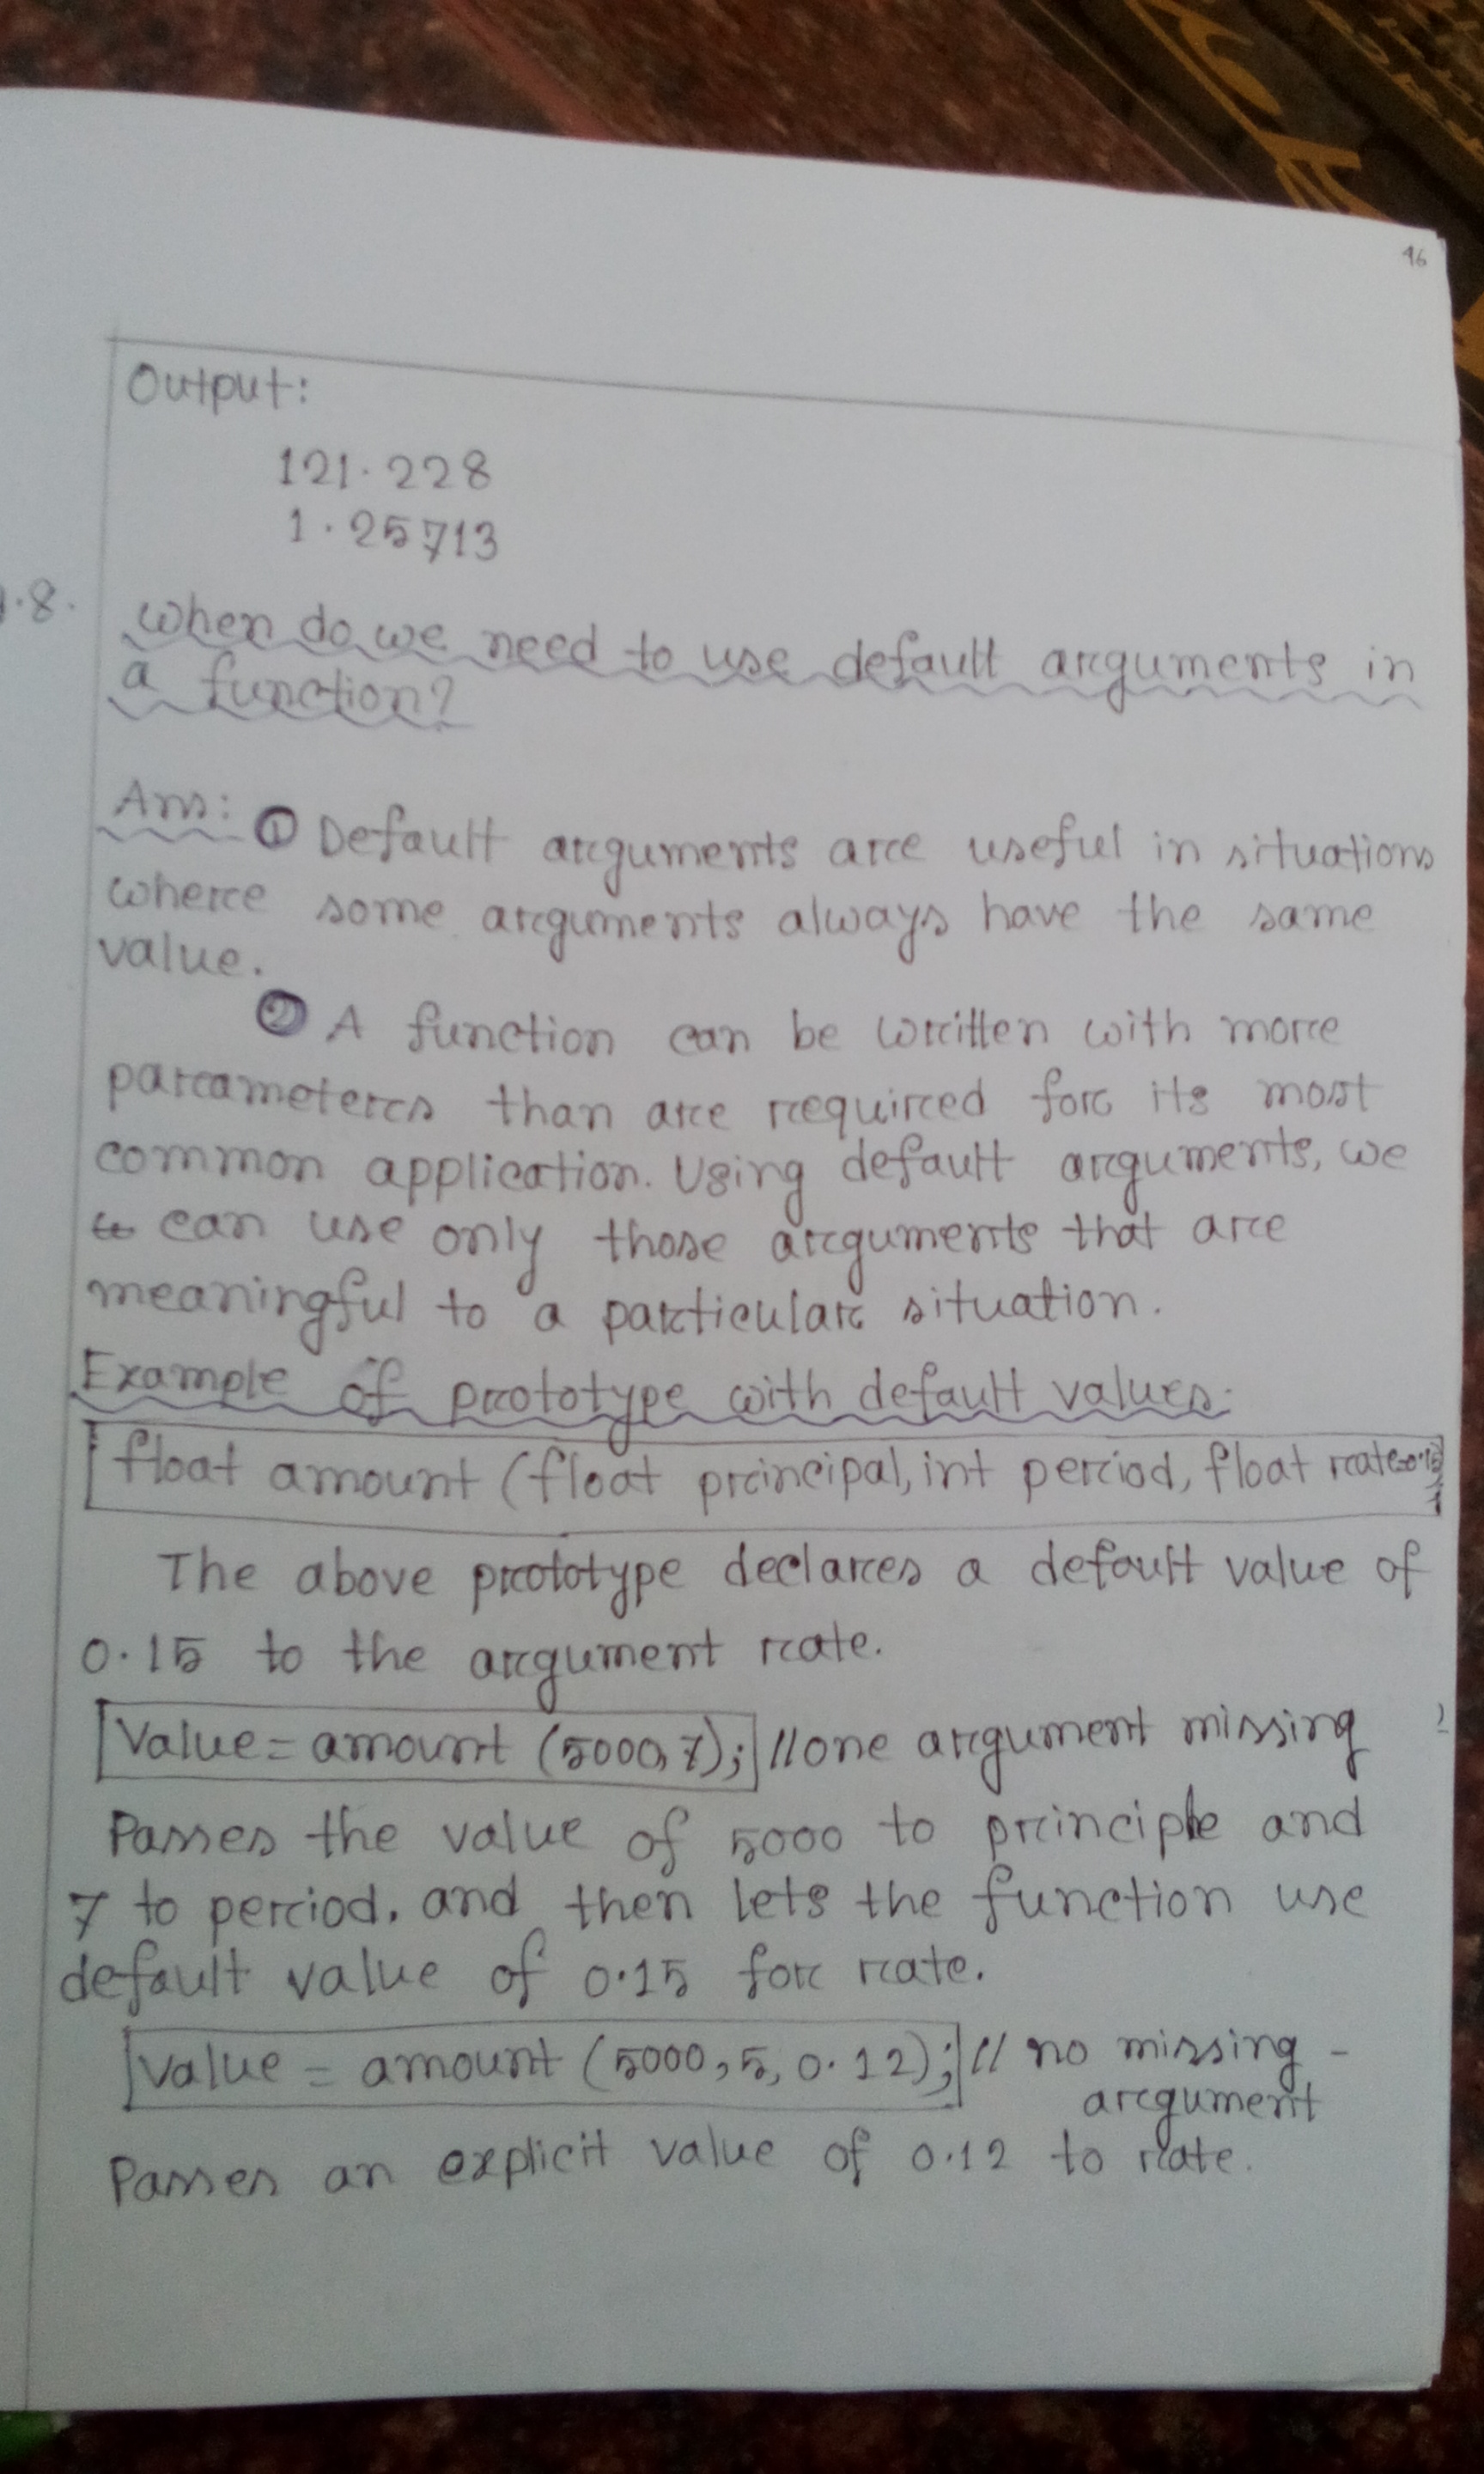 46
Output:
121.228
1.25713
.8. When do we need to use default arguments in
a function?
Ans: ① Default arguments are useful in situations
where some arguments always have the same
value.
② A function can be written with more
parameters than are required for its most
common application. Using default arguments, we
can use only those arguments that are
meaningful to a particular situation.
Example of prototype with default values:
float amount (float principal, int period, float rate=0.15
The above prototype declares a default value of
0.15 to the argument rate.
Value = amount (5000,7); //one argument missing
Passes the value of 5000 to principle and
7 to period. and then lets the function use
default value of 0.15 for rate.
Value = amount (5000,5,0.12); // no missing -
argument
Passes an explicit value of 0.12 to rate.